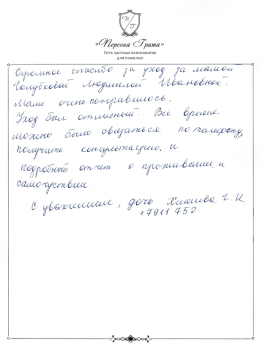 «Персона Грата»
Сеть частных пансионатов
для пожилых
Огромное спасибо за уход за мамой
Голубковой Людмилой Ивановной.
Маме очень понравилось.
Уход был отличный. Все время
можно было связаться по телефону,
получить консультацию, и
подробный отчет о проживании, и
самочувствии.
С уважением, дочь Г. И
+7911 752